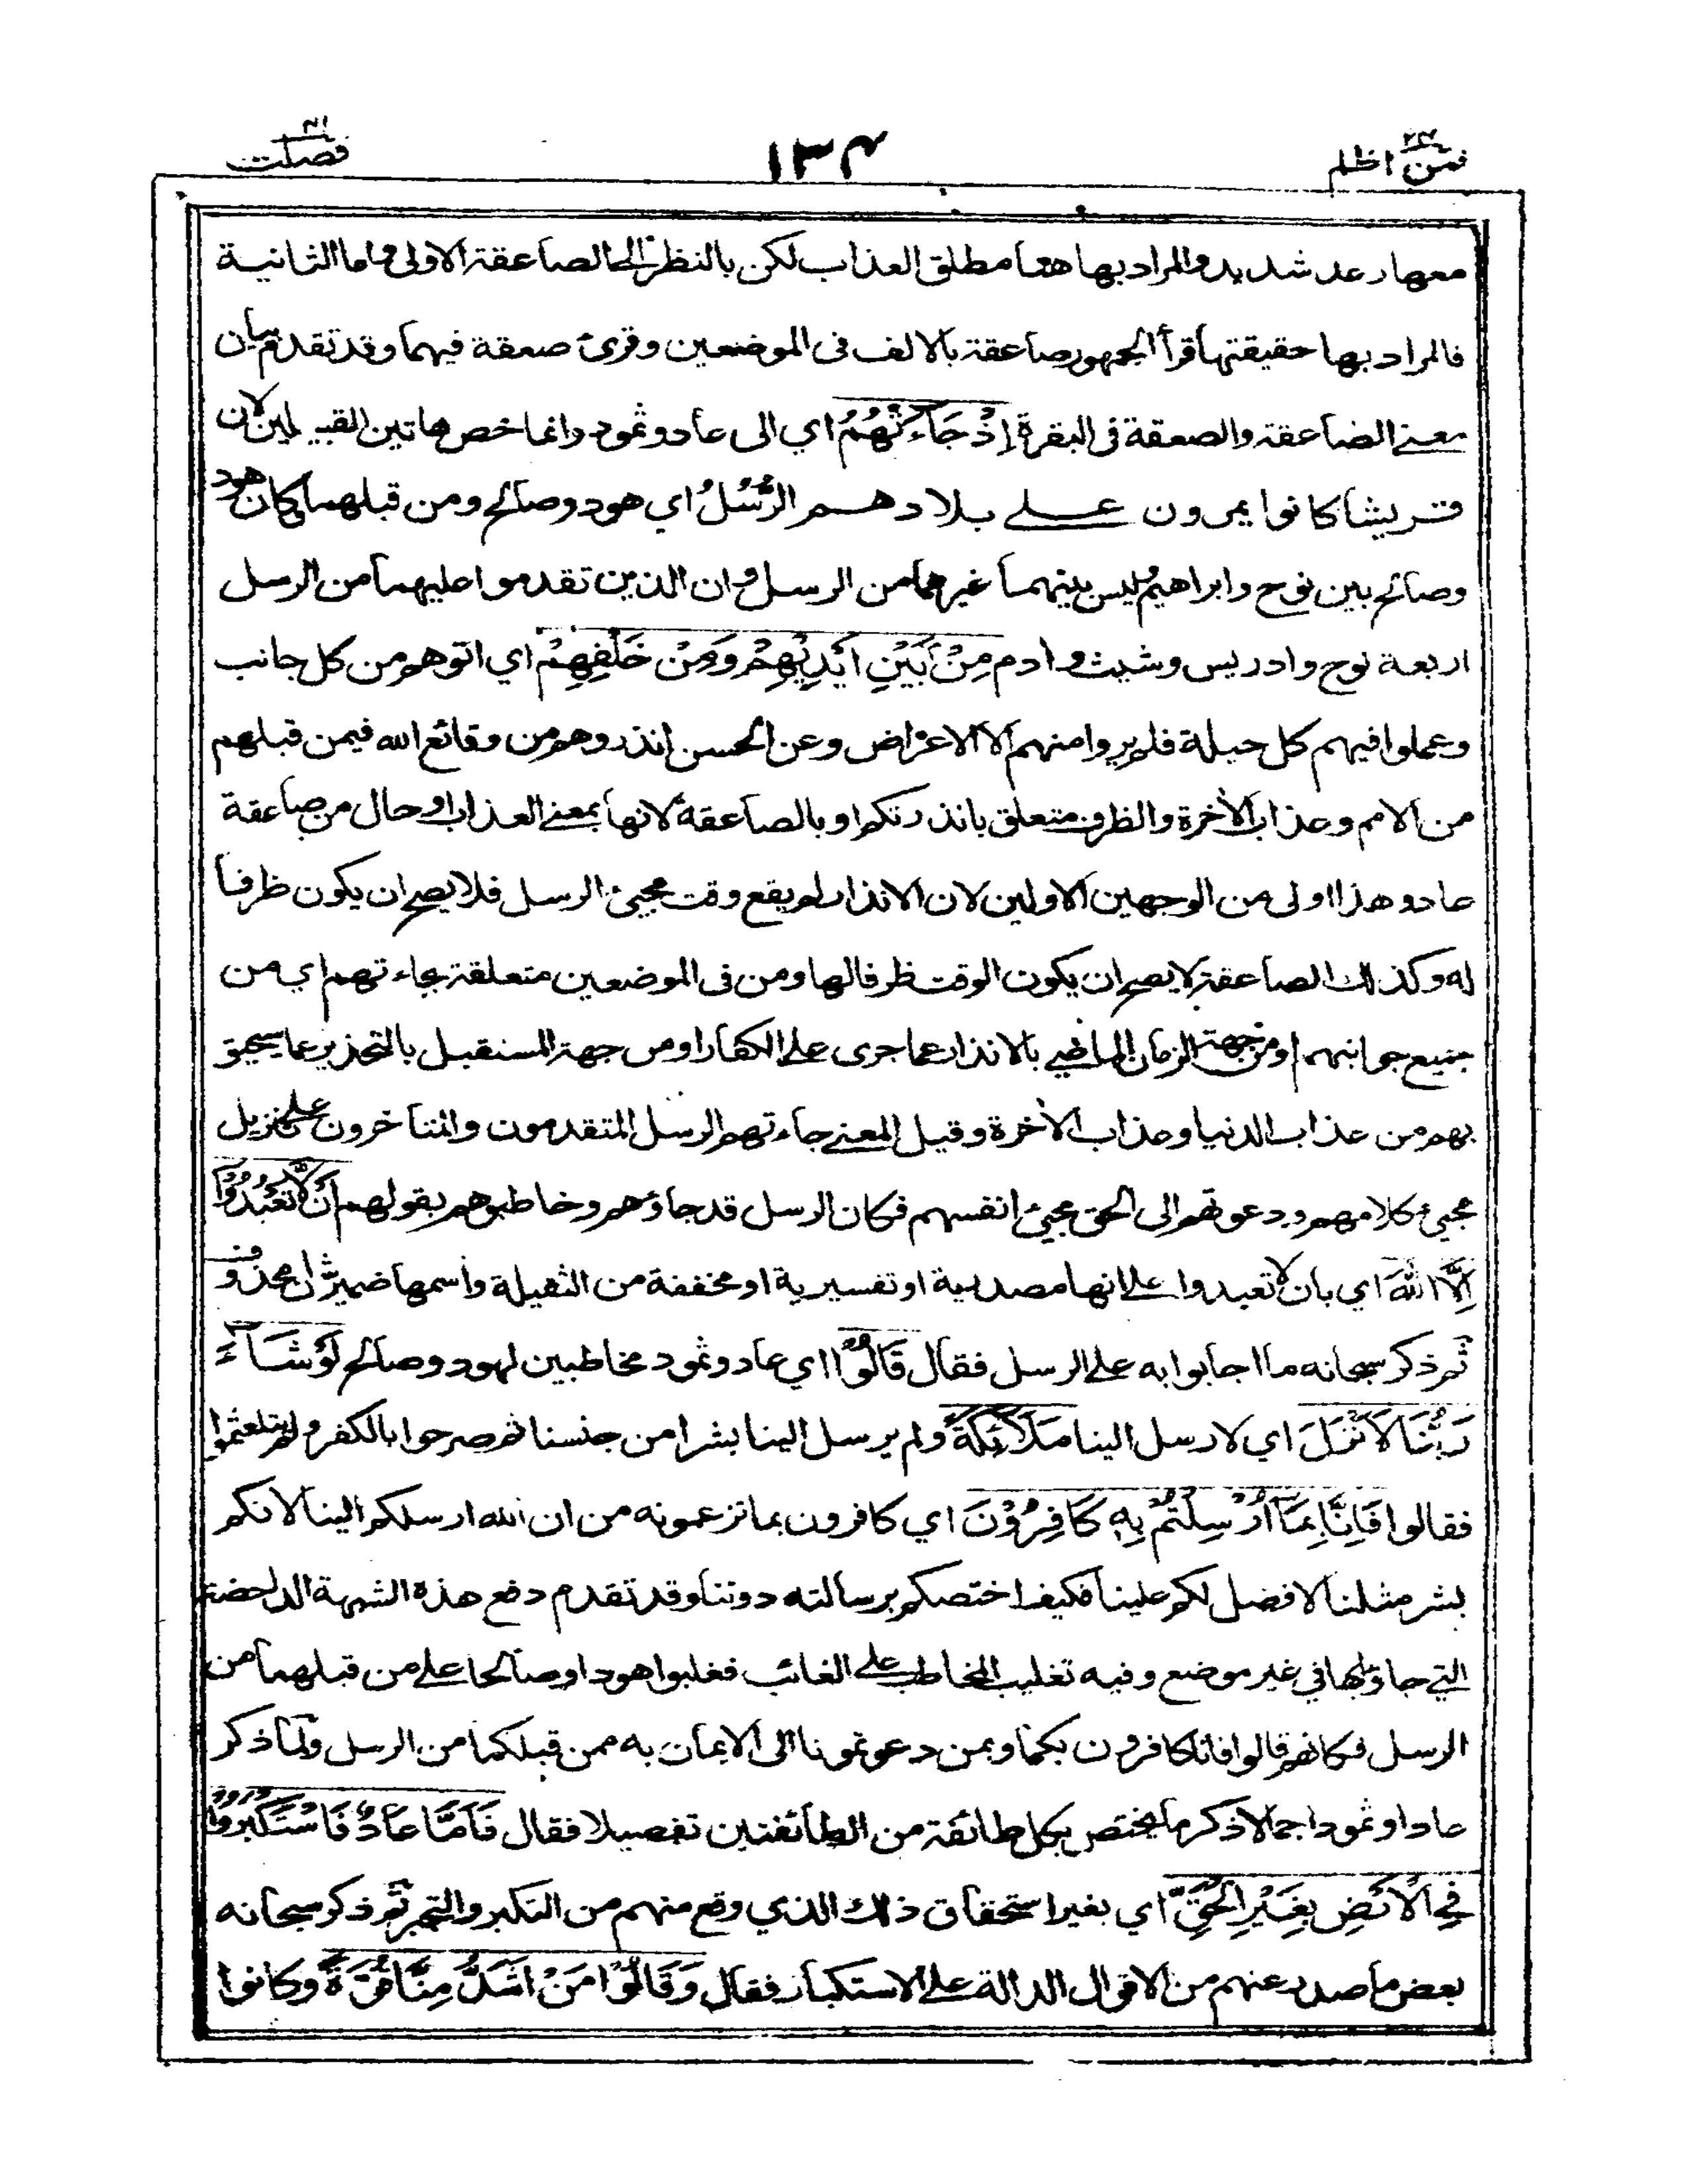 فمن اظلم ٢٤
١٣٤
فصلت ٤١
معها رعد شديد والمراد بها هنا مطلق العذاب لكن بالنظر الى الصاعقة الاولى واما الثانية
فالمراد بها حقيقتها قرأ الجمهور صاعقة بالالف فى الموضعين وقرئ صعقة فيهما وقد تقدم بيان
معنى الصاعقة والصعقة فى البقرة إِذْ جَاءَتْهُمُ اي الى عاد وثمود وانما خص هاتين القبيلتين لان
قريشا كانوا يمرون على بلادهم الرُّسُلُ اي هود وصالح ومن قبلهما كان هود
وصالح بين نوح وابراهيم وليس بينهما غيرهما من الرسل وان الذين تقدموا عليهما من الرسل
اربعة نوح وادريس وشيث وادم مِنْ بَيْنِ اَيْدِيْهِمْ وَمِنْ خَلْفِهِمْ اي اتوهم من كل جانب
وعملوا فيهم كل حيلة فلم يروا منهم الا الاعراض وعن الحسن انذروهم من وقائع الله فيمن قبلهم
من الامم وعذاب الاخرة والظرف متعلق بانذرتكم او بالصاعقة لانها بمعنى العذاب او حال من صاعقة
عاد وهذا اولى من الوجهين الاولين لان الانذار لم يقع وقت مجيئ الرسل فلا يصح ان يكون ظرفا
له وكذلك الصاعقة لا يصح ان يكون الوقت ظرفا لها ومن فى الموضعين متعلقة بجاءتهم اي من
جميع جوانبهم او من جهة الزمان الماضي بالانذار عما جرى على الكفار او من جهة المستقبل بالتحذير عما سيحيق
بهم من عذاب الدنيا وعذاب الاخرة وقيل المعنى جاءتهم الرسل المتقدمون والمتاخرون على تنزيل
مجيئ كلامهم ودعوتهم الى الحق مجيئ انفسهم فكان الرسل قد جاؤهم وخاطبوهم بقولهم اَنْ لَّا تَعْبُدُوْا
اِلَّا اللهَ اي بان لا تعبدوا على انها مصدرية او تفسيرية او مخففة من الثقيلة واسمها ضمير شان محذوف
ثم ذكر سبحانه ما اجابوا به على الرسل فقال قَالُوْا اي عاد وثمود مخاطبين لهود وصالح لَوْ شَاءَ
رَبُّنَا لَاَنْزَلَ اي لارسل الينا مَلَائِكَةً ولم يرسل الينا بشرا من جنسنا ثم صرحوا بالكفر ولم يتلعثموا
فقالوا فَاِنَّا بِمَا اُرْسِلْتُمْ بِهِ كَافِرُوْنَ اي كافرون بما تزعمونه من ان الله ارسلكم الينا لانكم
بشر مثلنا لا فضل لكم علينا فكيف اختصكم برسالته دوننا وقد تقدم دفع هذه الشبهة الداحضة
التي جاؤا بها في غير موضع وفيه تغليب المخاطب على الغائب فغلبوا هودا وصالحا على من قبلهما من
الرسل فكانهم قالوا فانا كافرون بكما وبمن دعوتمونا الى الايمان به ممن قبلكما من الرسل ولما ذكر
عادا وثمود اجمالا ذكر ما يختص بكل طائفة من الطائفتين تفصيلا فقال فَاَمَّا عَادٌ فَاسْتَكْبَرُوْا
فِي الْاَرْضِ بِغَيْرِ الْحَقِّ اي بغير استحقاق ذلك الذي وقع منهم من التكبر والتجبر ثم ذكر سبحانه
بعض ما صدر عنهم من الاقوال الدالة على الاستكبار فقال وَقَالُوْا مَنْ اَشَدُّ مِنَّا قُوَّةً وكانوا